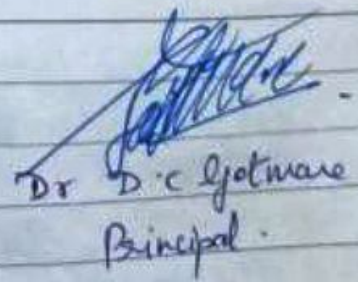 Dr D.C Gotmare
Principal.